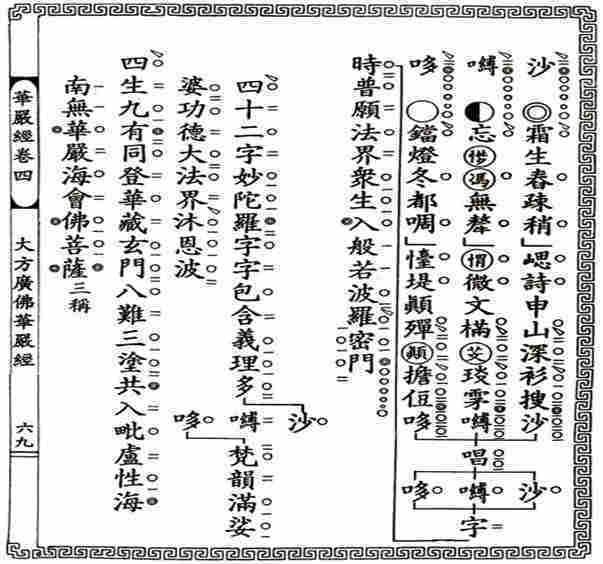 沙 ◎霜生春疎稍」詩申山深衫搜沙
嚩 ◐忘馮無」微文樠嚩
哆 ○鐺燈冬都啁」堤顛殫顛擔哆
唱
沙
嚩
哆
字
時普願法界衆生入般若波羅密門
四十二字妙陀羅字字包含義理多
沙
嚩
哆
梵韻滿娑
婆功德大法界沐恩波
四生九有同登華藏玄門八難三塗共入毗盧性海
南無華嚴海會佛菩薩三稱
華嚴經卷四 大方廣佛華嚴經 六九